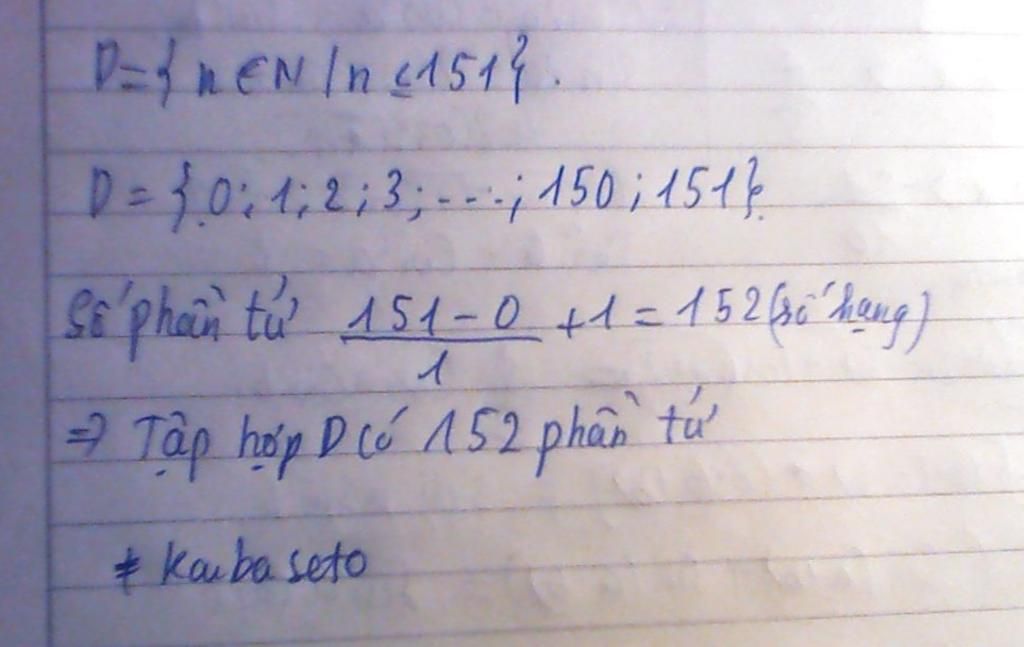 D = { n ∈ N / n ≤ 151 } .
D = { 0 ; 1 ; 2 ; 3 ; ... ; 150 ; 151 }.
Số phần tử (151 - 0)/1 + 1 = 152 (số hạng)
=> Tập hợp D có 152 phần tử
* Kaiba seto